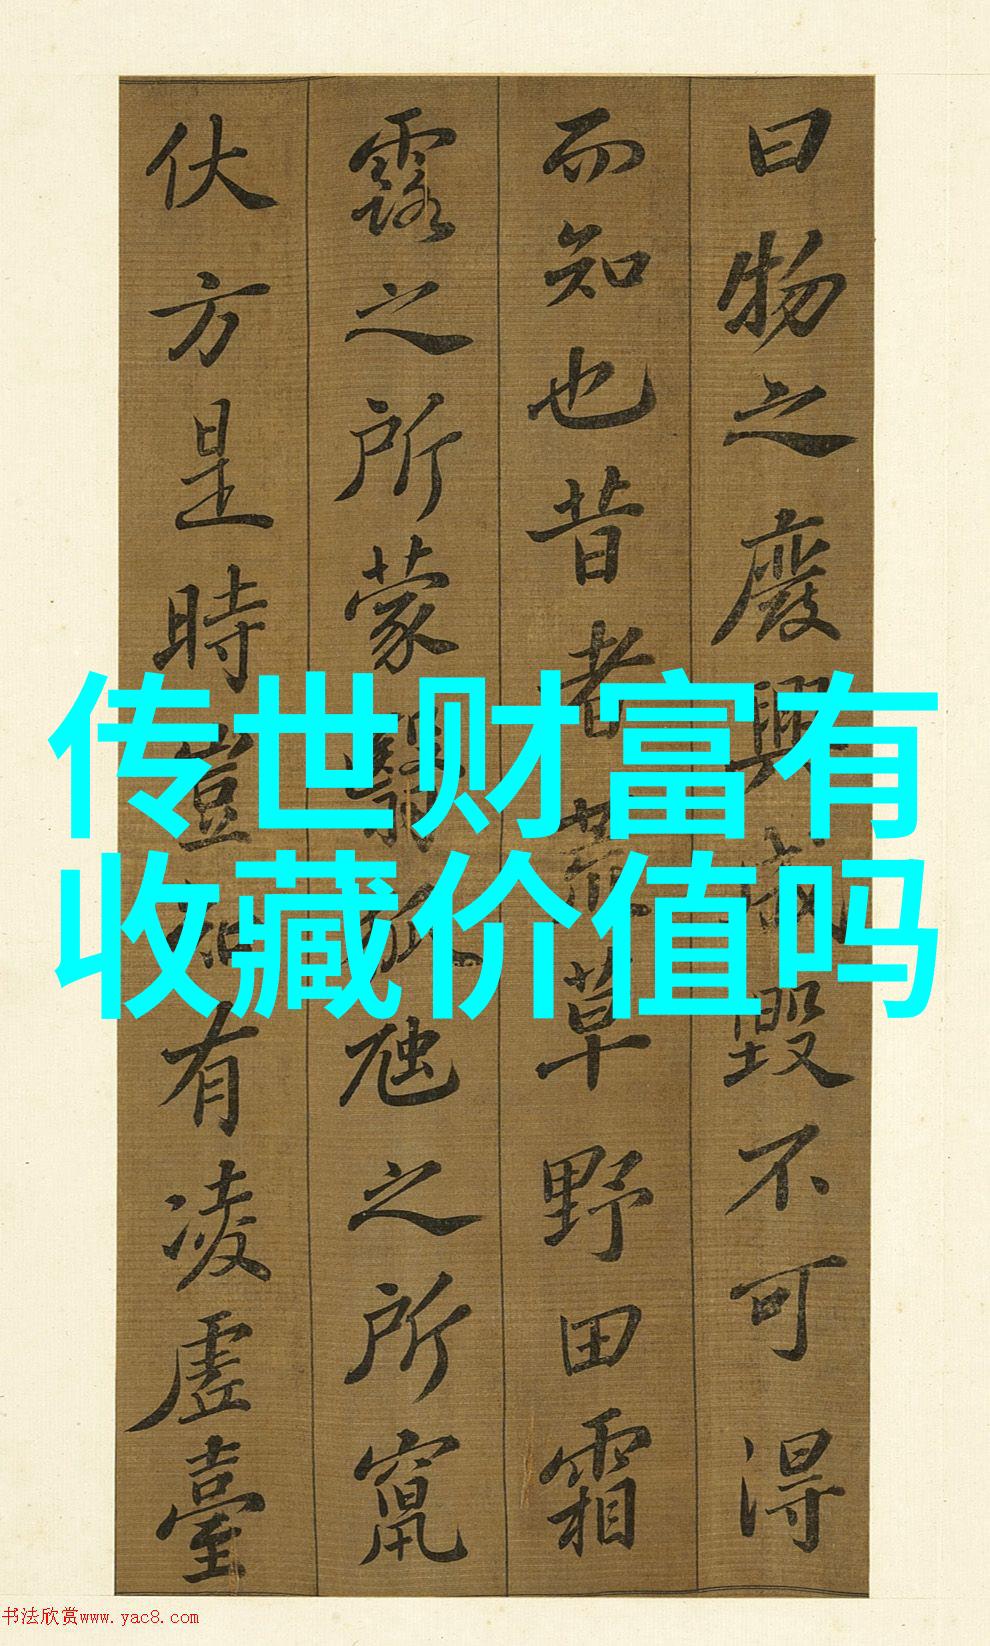 传世财富有
收藏价值吗
曰物之廢興成毀不可得
而知也昔者荒草野田霜
露之所蒙翳狐虺之所竄
伏方是時豈知有凌虛臺
书法欣赏www.yac8.com